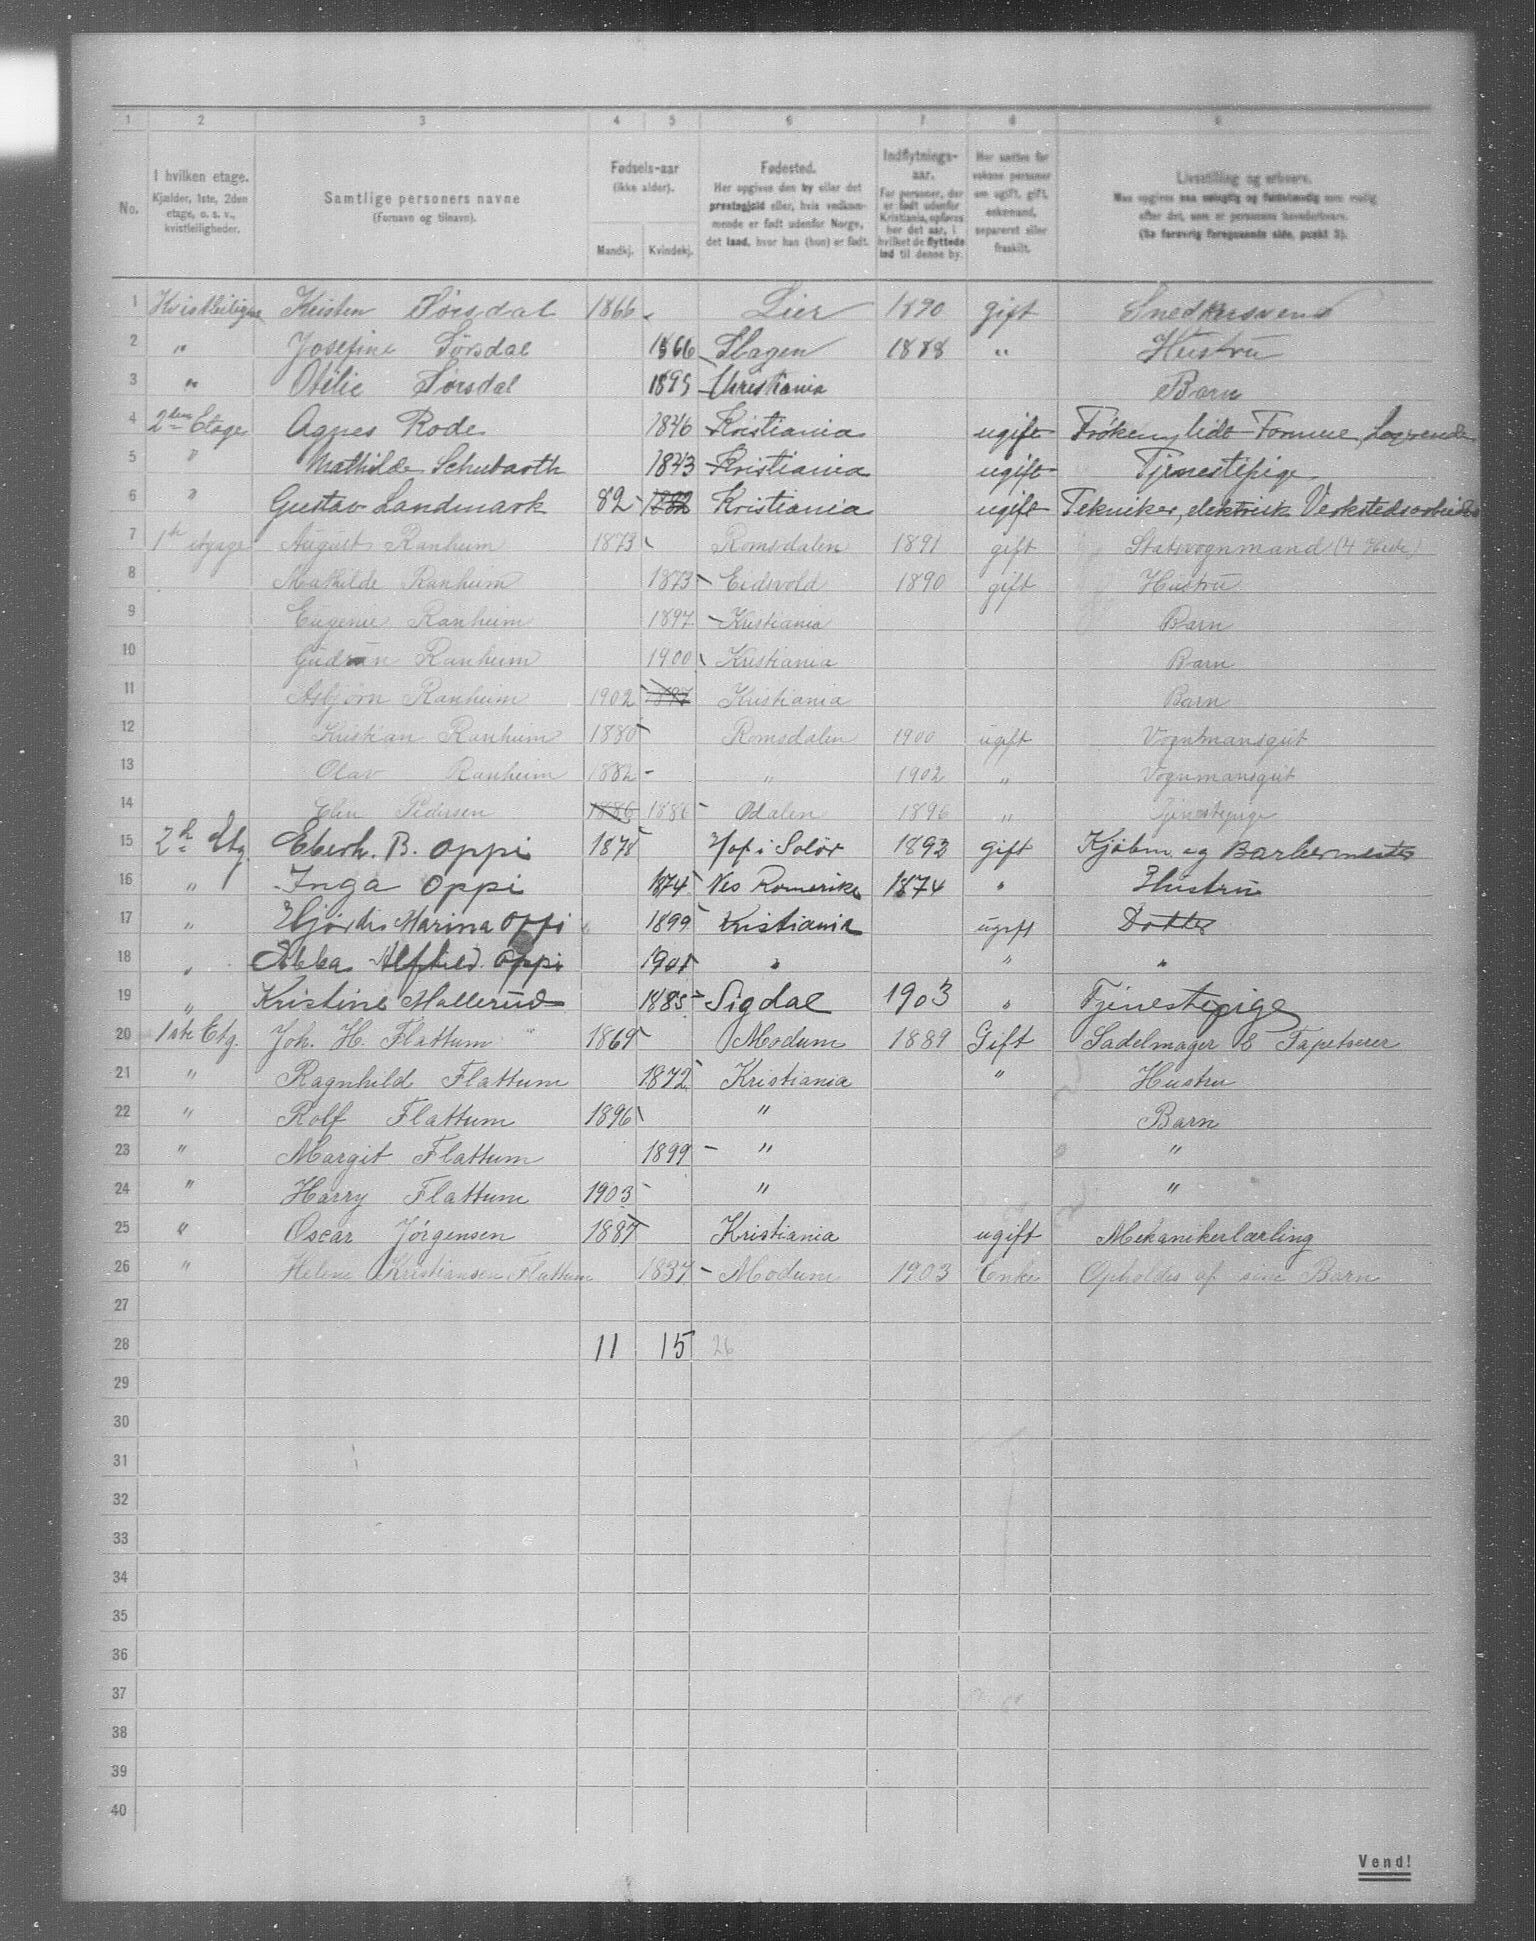 1 2 3 4 5 6 7 8 9
No.
I hvilken etage.
Kjælder, 1ste, 2den
etage, o. s. v.,
kvistleiligheder.
Samtlige personers navne
(Fornavn og tilnavn).
Fødsels-aar
(ikke alder).
Mandkj. Kvindekj.
Fødested.
Her opgives den by eller det
prestegjeld eller, hvis vedkom-
mende er født udenfor Norge,
det land, hvor han (hun) er født.
Indflytnings-
aar.
For personer, der
er født udenfor
Kristiania, opføres
her det aar, i
hvilket de flyttede
ind til denne by.
Her sættes for
voksne personer
om ugift, gift,
enkemand,
separeret eller
fraskilt.
Livsstilling og erhverv.
Man opgives saa nøiagtig og fuldstændig som mulig
efter det, som er personens hovederhverv.
(Se forøvrig foregaaende side, punkt 3).
1 Kristen Sørsdal 1866 Lier 1890 gift Snedkersvend
2 " Josefine Sørsdal 1866 Slagen 1888 " Hustru
3 " Otilie Sørsdal 1895 Christiania Barn
4 2den Etage Agnes Rode 1846 Kristiania ugift Frøken, lidt Formue
5 " Mathilde Schubarth 1843 Kristiania ugift Tjenestepige
6 " Gustav Landmark 82 1882 Kristiania ugift Tekniker, elektrisk Verkstedsarbeider
7 1ste August Ranheim 1873 Romsdalen 1891 gift Statsvognmand (4 Heste)
8 Mathilde Ranheim 1873 Eidsvold 1890 gift Hustru
9 Eugenie Ranheim 1897 Kristiania Barn
10 Gudrun Ranheim 1900 Kristiania Barn
11 Asbjørn Ranheim 1902 Kristiania Barn
12 Kristian Ranheim 1880 Romsdalen 1900 ugift Vognmansgut
13 Olav Ranheim 1882 " 1902 " Vognmansgut
14 Elin Pedersen 1886 1886 Odalen 1896 " Tjenestepige
15 2n Etg. Eberh. B. Oppi 187 Hof i Solør 1893 gift Kjøbm. og Barbermester
16 " Inga Oppi 1874 Nes Romerike 1874 " Hustru
17 " Hjørdis Marina Oppi 1899 Kristiania ugift Dotter
18 " Ebba Alfhild Oppi 1901 " " "
19 " Kristine Mallerud 1885 Sigdal 1903 " Tjenestepige
20 1ste Etg. Joh. H. Flattum 1869 Modum 1889 Gift Sadelmager & Tapetserer
21 " Ragnhild Flattum 1872 Kristiania " Hustru
22 " Rolf Flattum 1896 " Barn
23 " Margit Flattum 1899 " "
24 " Harry Flattum 1903 " "
25 " Oscar Jørgensen 1887 Kristiania ugift Mekanikerlærling
26 " Helene Kristiansen Flattum 1837 Modum 1903 Enke Opholdes af sine Barn
27
28 11 15 26
29
30
31
32
33
34
35
36
37
38
39
40
Vend!